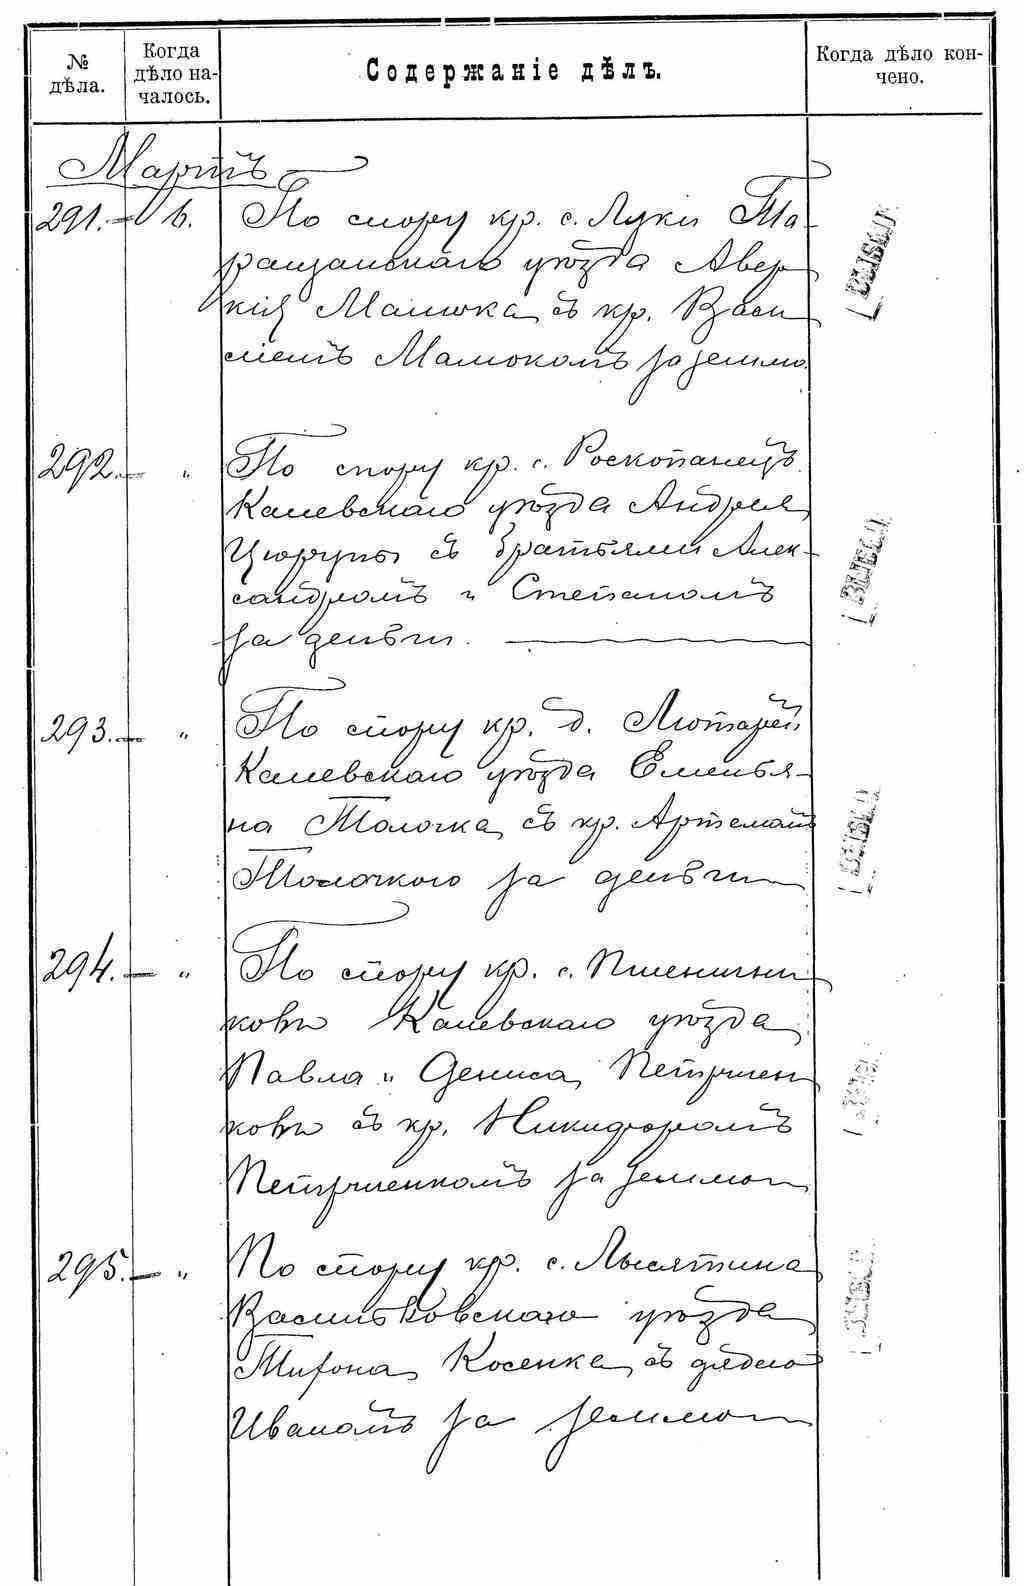 № дѣла.
Когда дѣло на-
чалось.
Содержаніе дѣлъ.
Когда дѣло кон-
чено.
Мартъ
291. — 6. По спору кр. с. Луки Та-
ращанскаго уѣзда Авер
кія Малюка съ кр. Васи
ліемъ Малюкомъ за землю.
ВЫБЫЛ
292. — " По спору кр. с. Роскопанецъ
Каневскаго уѣзда Андрея
Цюрупы съ братьями Алек-
сандромъ и Степаномъ
за деньги.
ВЫБЫЛ
293. — " По спору кр. д. Лютарей
Каневскаго уѣзда Емелья-
на Толочка съ кр. Артемомъ
Толочкою за деньги
ВЫБЫЛ
294. — " По спору кр. с. Пшенични
ковъ Каневскаго уѣзда
Павла и Дениса Петрчен
ковъ съ кр. Никифоромъ
Петрченкомъ за землю
295. — " По спору кр. с. Лысятина
Васильковскаго уѣзда
Тихона Косенка съ дядею
Иваномъ за землю